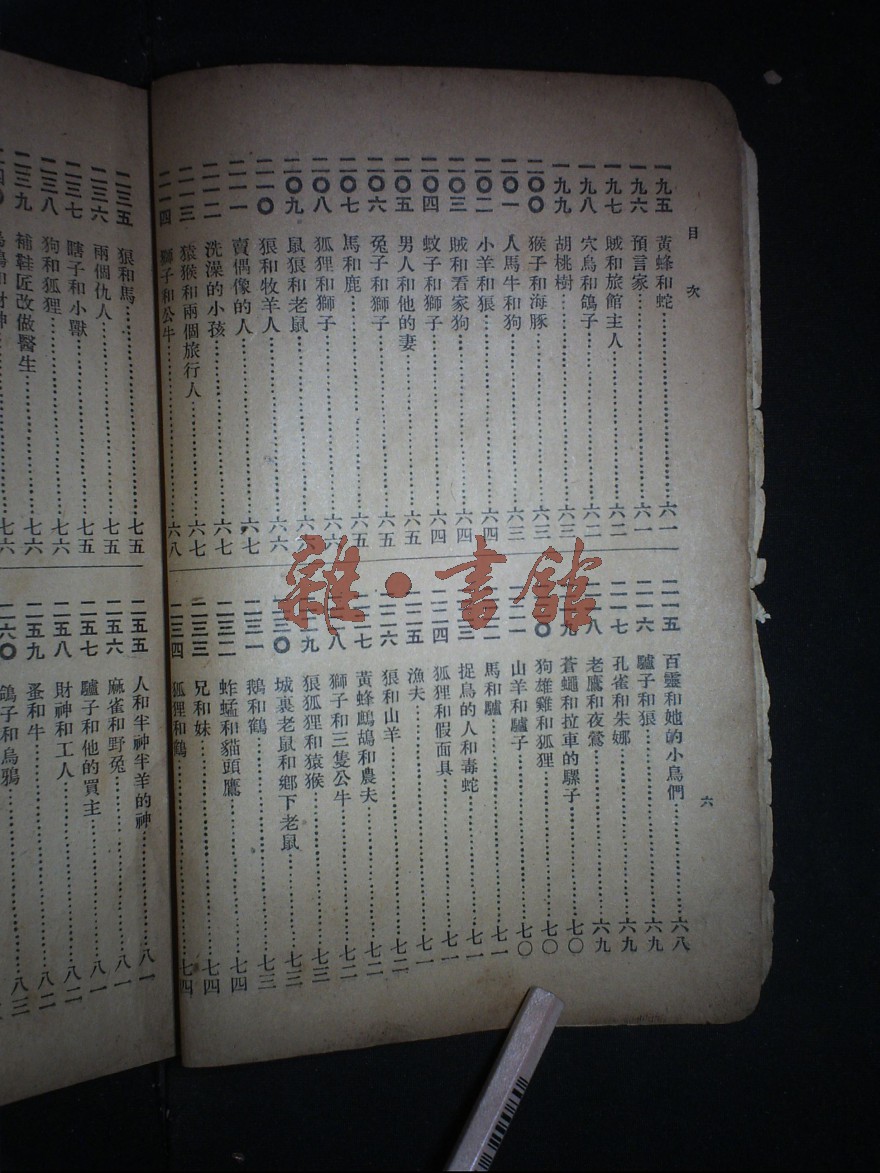 目次
一九五 黃蜂和蛇 六一
一九六 預言家 六一
一九七 賊和旅館主人 六二
一九八 穴鳥和鴿子 六二
一九九 胡桃樹 六三
二〇〇 猴子和海豚 六三
二〇一 人馬牛和狗 六三
二〇二 小羊和狼 六四
二〇三 賊和看家狗 六四
二〇四 蚊子和獅子 六四
二〇五 男人和他的妻 六五
二〇六 兔子和獅子 六五
二〇七 馬和鹿 六五
二〇八 狐狸和獅子 六六
二〇九 鼠狼和老鼠 六六
二一〇 狼和牧羊人 六六
二一一 賣偶像的人 六七
二一二 洗澡的小孩 六七
二一三 猿猴和兩個旅行人 六七
二一四 獅子和公牛 六八
六
二一五 百靈和她的小鳥們 六八
二一六 驢子和狼 六九
二一七 孔雀和朱娜 六九
二一八 老鷹和夜鶯 六九
二一九 蒼蠅和拉車的騾子 七〇
二二〇 狗雄雞和狐狸 七〇
二二一 山羊和驢子 七〇
二二二 馬和驢 七一
二二三 捉鳥的人和毒蛇 七一
二二四 狐狸和假面具 七一
二二五 漁夫 七一
二二六 狼和山羊 七二
二二七 黃蜂鷓鴣和農夫 七二
二二八 獅子和三隻公牛 七二
二二九 狼狐狸和猿猴 七三
二三〇 城裏老鼠和鄉下老鼠 七三
二三一 鵝和鶴 七三
二三二 蚱蜢和貓頭鷹 七四
二三三 兄和妹 七四
二三四 狐狸和鶴 七四
二三五 狼和馬 七五
二三六 兩個仇人 七五
二三七 瞎子和小獸 七五
二三八 狗和狐狸 七六
二三九 補鞋匠改做醫生 七六
和財神 七六
二五五 人和半神半羊的神 八一
二五六 麻雀和野兔 八一
二五七 驢子和他的買主 八一
二五八 財神和工人 八二
二五九 蚤和牛 八二
二六〇 鴿子和烏鴉 八三
雜·書館